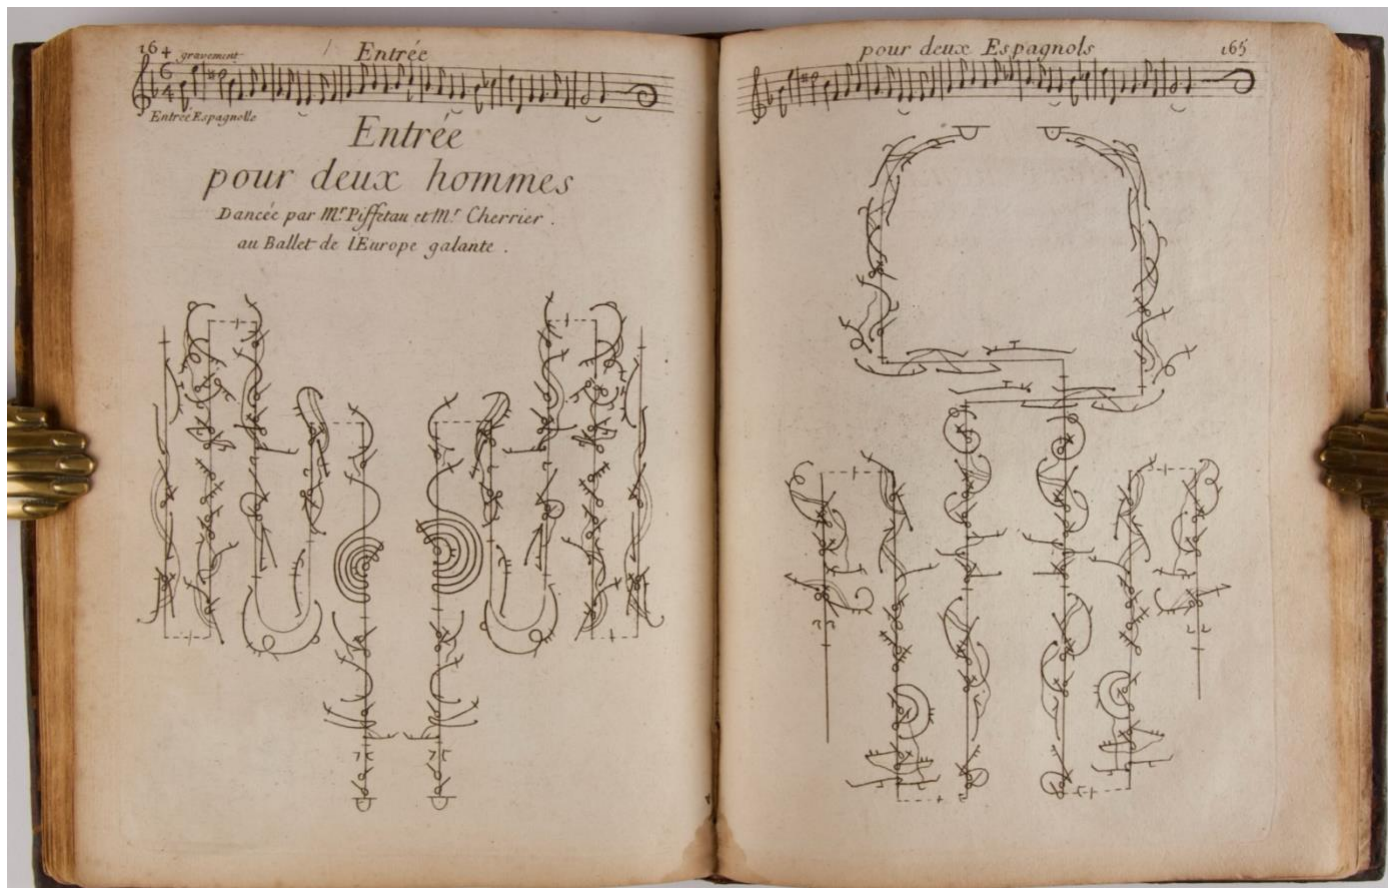 164 gravement Entrée
Entrée Espagnolle
Entrée
pour deux hommes
Dancée par Mr. Piffetau et Mr. Cherrier.
au Ballet de l'Europe galante.
pour deux Espagnols 165